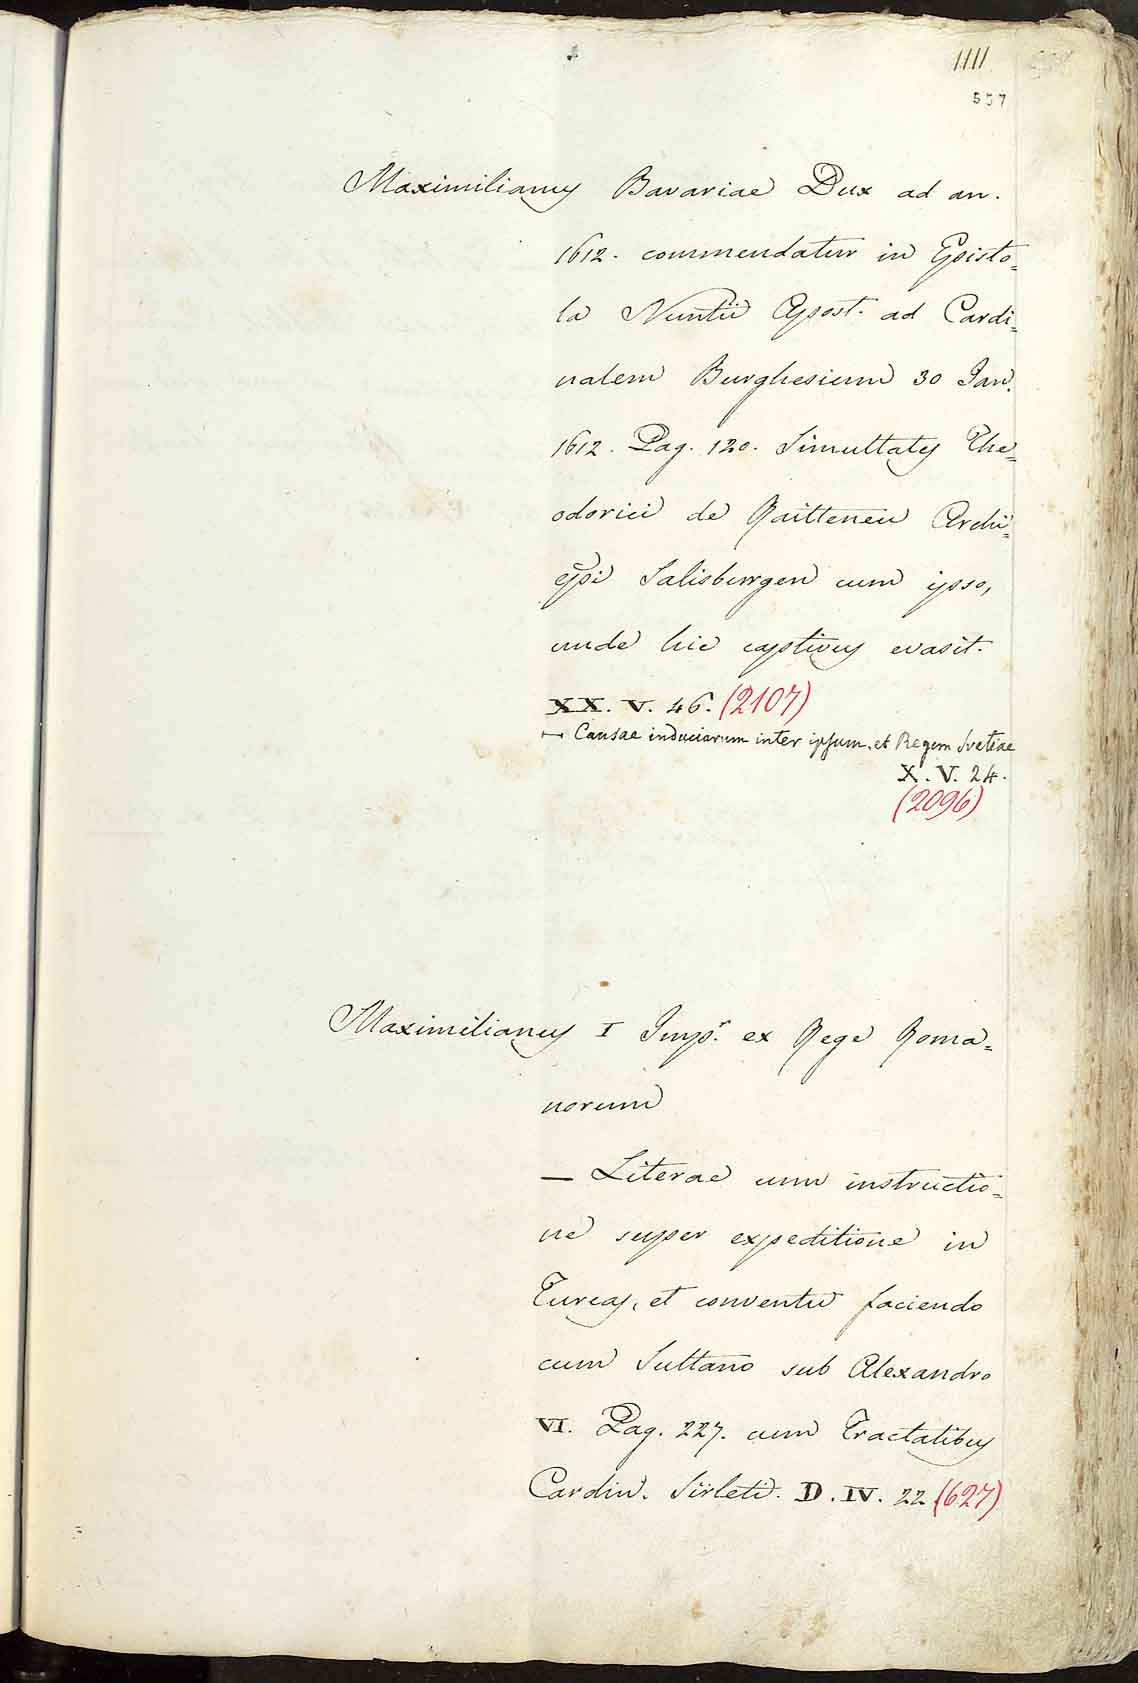 1111
557
Maximilianus Bavariae Dux ad an.
1612. commendatur in Episto=
la Nuntii Apost. ad Cardi=
nalem Burghesium 30 Jan.
1612. Pag. 120. Simultates The=
odorici de Raitteneu Archi=
epi Salisburgen cum ipso,
unde hic captivus evasit.
XX. V. 46. (2107)
— Causae induciarum inter ipsum, et Regem Svetiae
X. V. 24.
(2096)
Maximilianus I Impr. ex Rege Roma=
norum
— Literae cum instructio=
ne super expeditione in
Turcas, et conventu faciendo
cum Sultano sub Alexandro
VI. Pag. 227. cum Tractatibus
Cardin. Sirleti. D. IV. 22 (627)